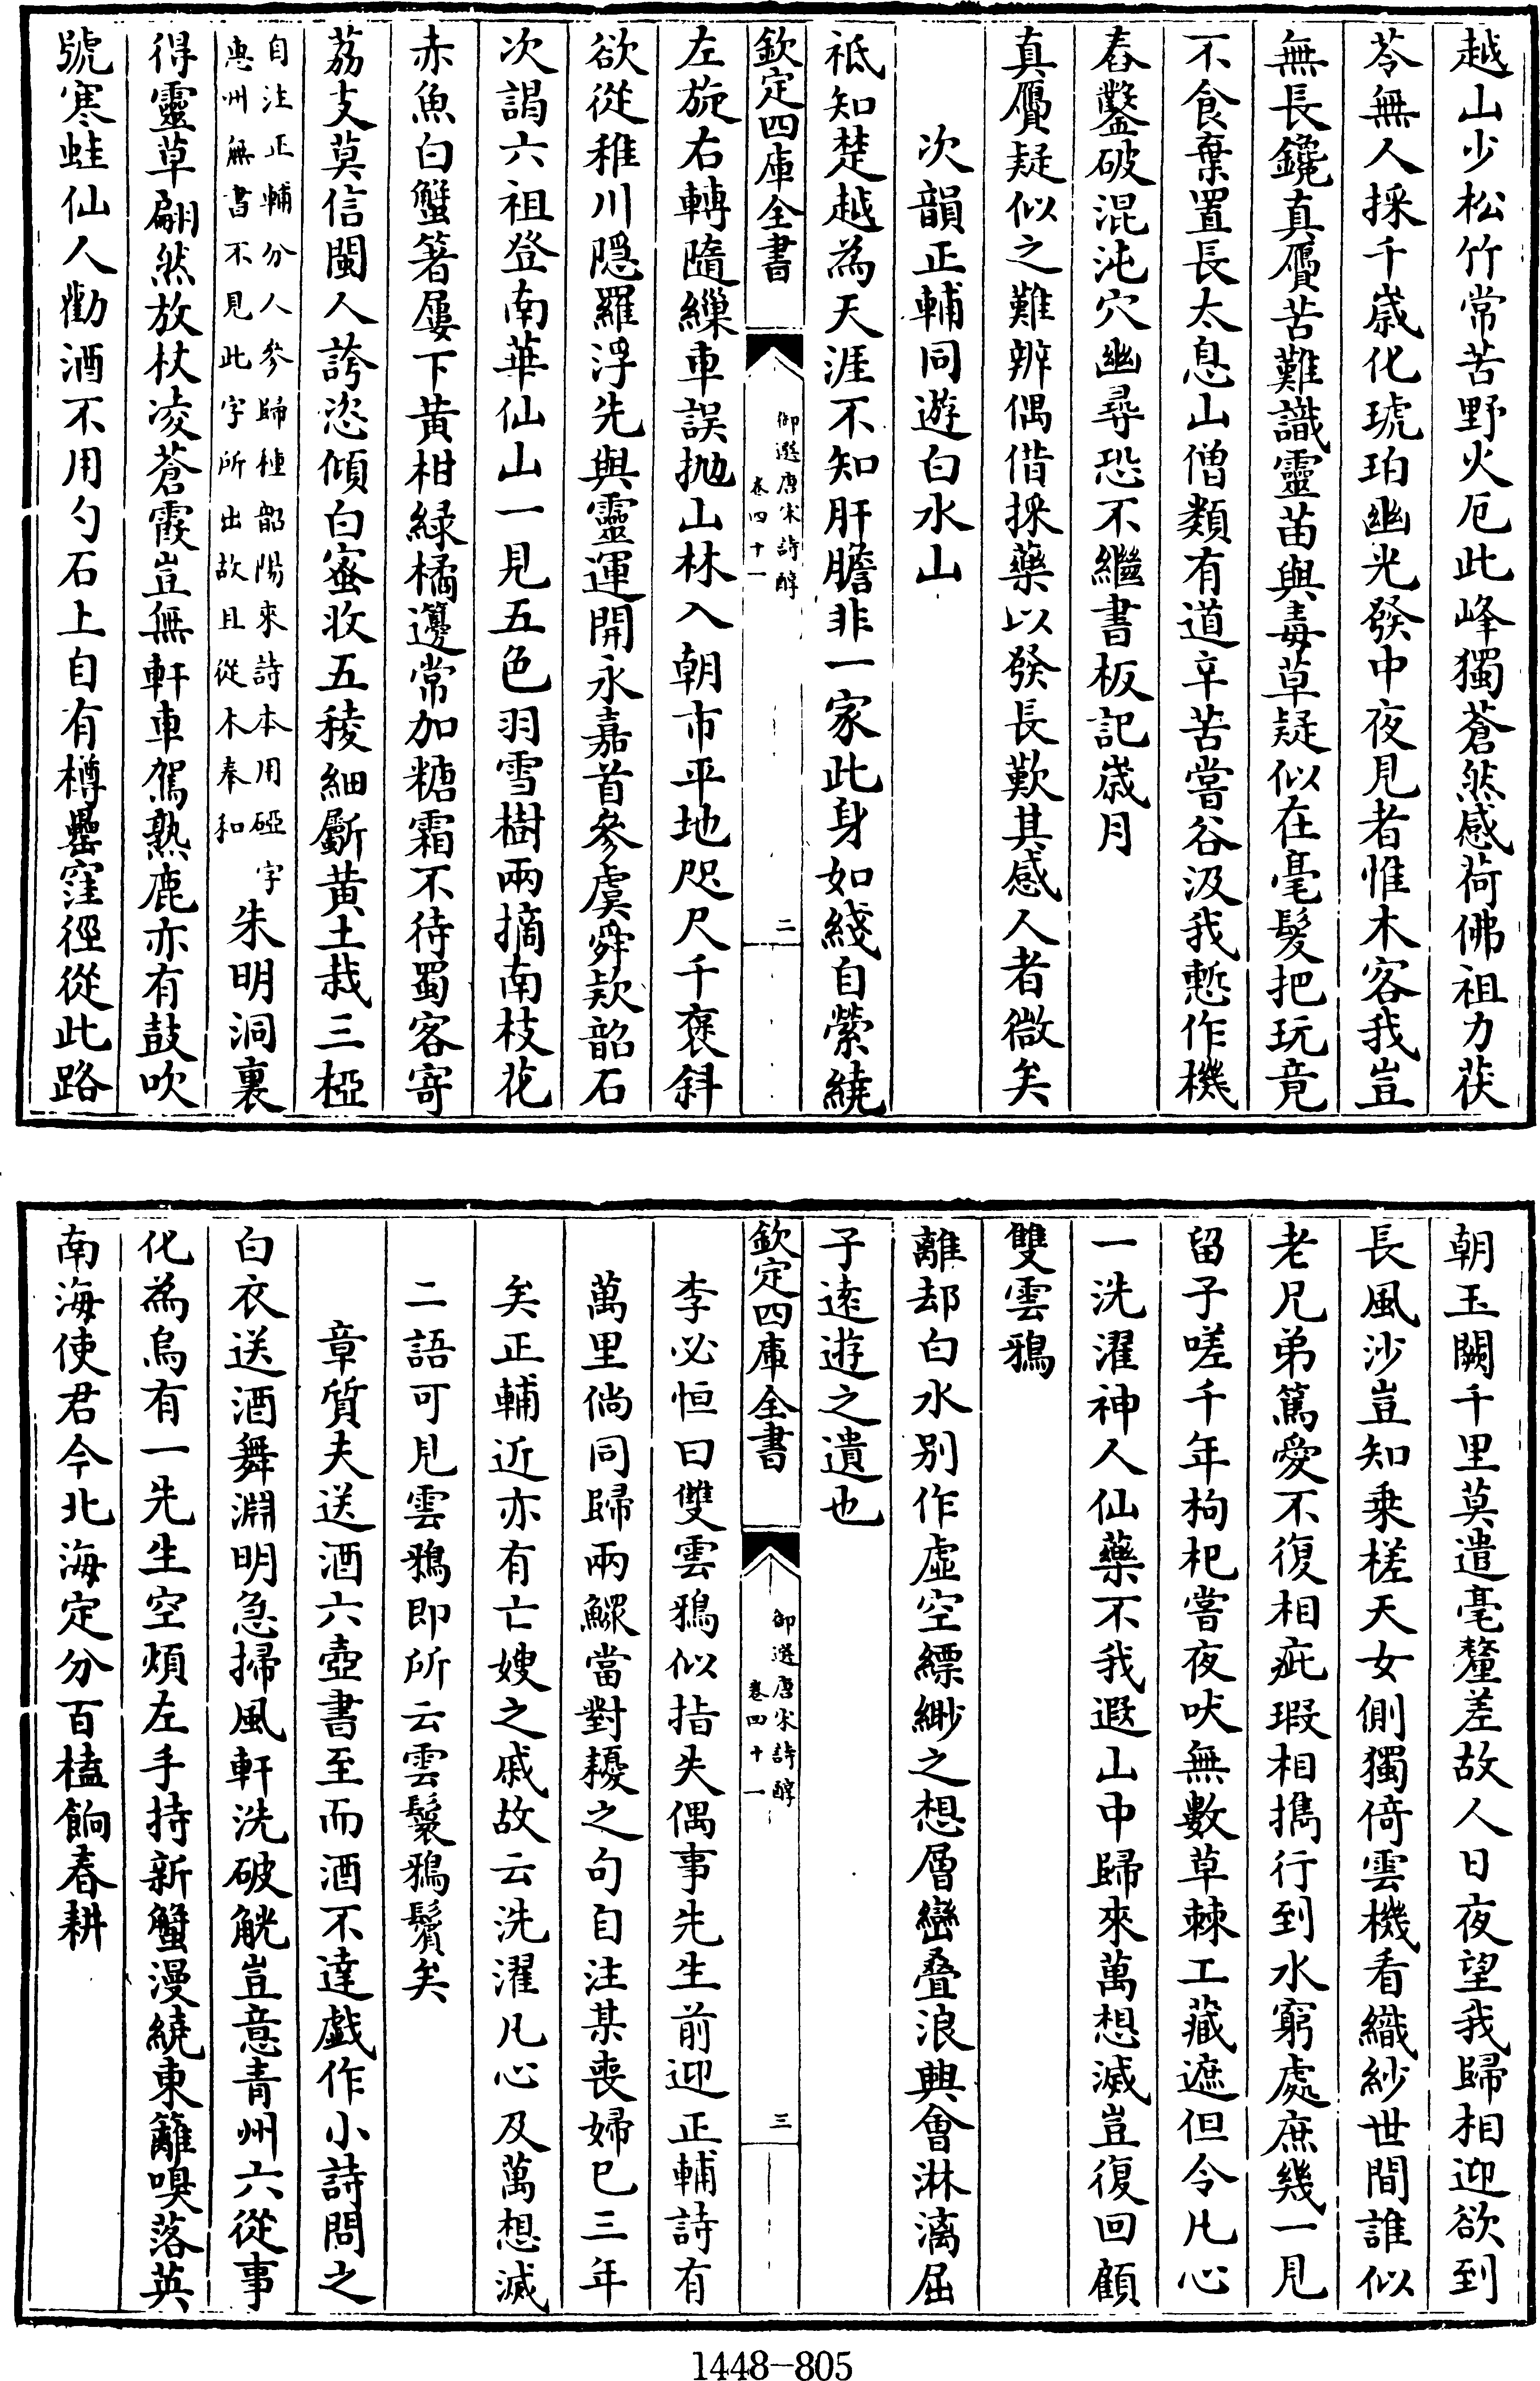 越山少松竹常苦野火厄此峰獨蒼然感荷佛祖力茯
苓無人採千歳化琥珀幽光發中夜見者惟木客我豈
無長鑱真贗苦難識靈苗與毒草疑似在毫髮把玩竟
不食棄置長太息山僧類有道辛苦嘗谷汲我慙作機
舂鑿破混沌穴幽尋恐不繼書板記歳月
真贗疑似之難辨偶借採藥以發長歎其感人者微矣
次韻正輔同遊白水山
祇知楚越為天涯不知肝膽非一家此身如綫自縈繞
欽定四庫全書
御選唐宋詩醇
卷四十一
二
左旋右轉隨繅車誤抛山林入朝市平地咫尺千褒斜
欲從稚川隱羅浮先與靈運開永嘉首參虞舜款韶石
次謁六祖登南華仙山一見五色羽雪樹兩摘南枝花
赤魚白蟹箸屢下黄柑緑橘籩常加糖霜不待蜀客寄
荔支莫信閩人誇恣傾白蜜收五稜細斸黄土栽三椏
自注正輔分人參歸種韶陽來詩本用硜字
惠州無書不見此字所出故且從木奉和
朱明洞裏
得靈草翩然放杖凌蒼霞豈無軒車駕熟鹿亦有鼓吹
號寒蛙仙人勸酒不用勺石上自有樽罍窪徑從此路
朝玉闕千里莫遣毫釐差故人日夜望我歸相迎欲到
長風沙豈知乗槎天女側獨倚雲機看織紗世間誰似
老兄弟篤愛不復相疵瑕相擕行到水窮處庶幾一見
留子嗟千年枸杞嘗夜吠無數草棘工藏遮但令凡心
一洗濯神人仙藥不我遐山中歸來萬想滅豈復回顧
雙雲鴉
離却白水别作虚空縹緲之想層巒叠浪興會淋漓屈
子遠遊之遺也
欽定四庫全書
御選唐宋詩醇
卷四十一
三
李必恒曰雙雲鴉似指失偶事先生前迎正輔詩有
萬里倘同歸兩鰥當對耰之句自注某喪婦已三年
矣正輔近亦有亡嫂之戚故云洗濯凡心及萬想滅
二語可見雲鴉即所云雲鬟鴉鬢矣
章質夫送酒六壺書至而酒不達戯作小詩問之
白衣送酒舞淵明急掃風軒洗破觥豈意青州六從事
化為烏有一先生空煩左手持新蟹漫繞東籬嗅落英
南海使君今北海定分百榼餉春耕
1448-805